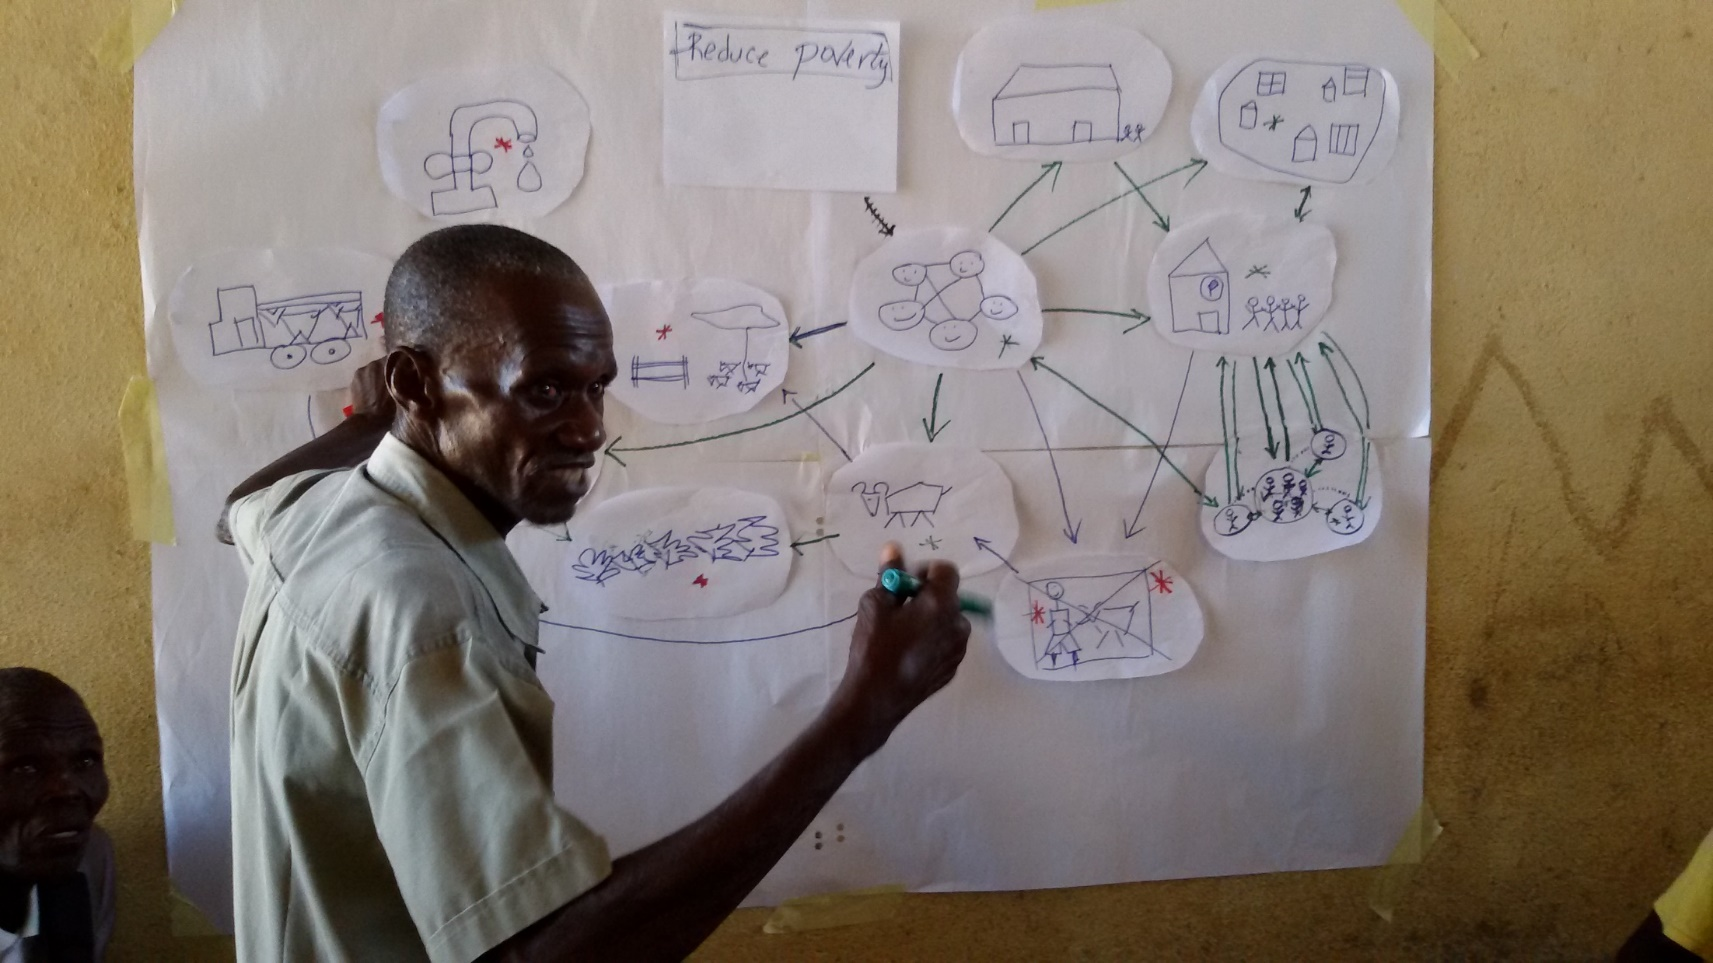 Reduce poverty
P